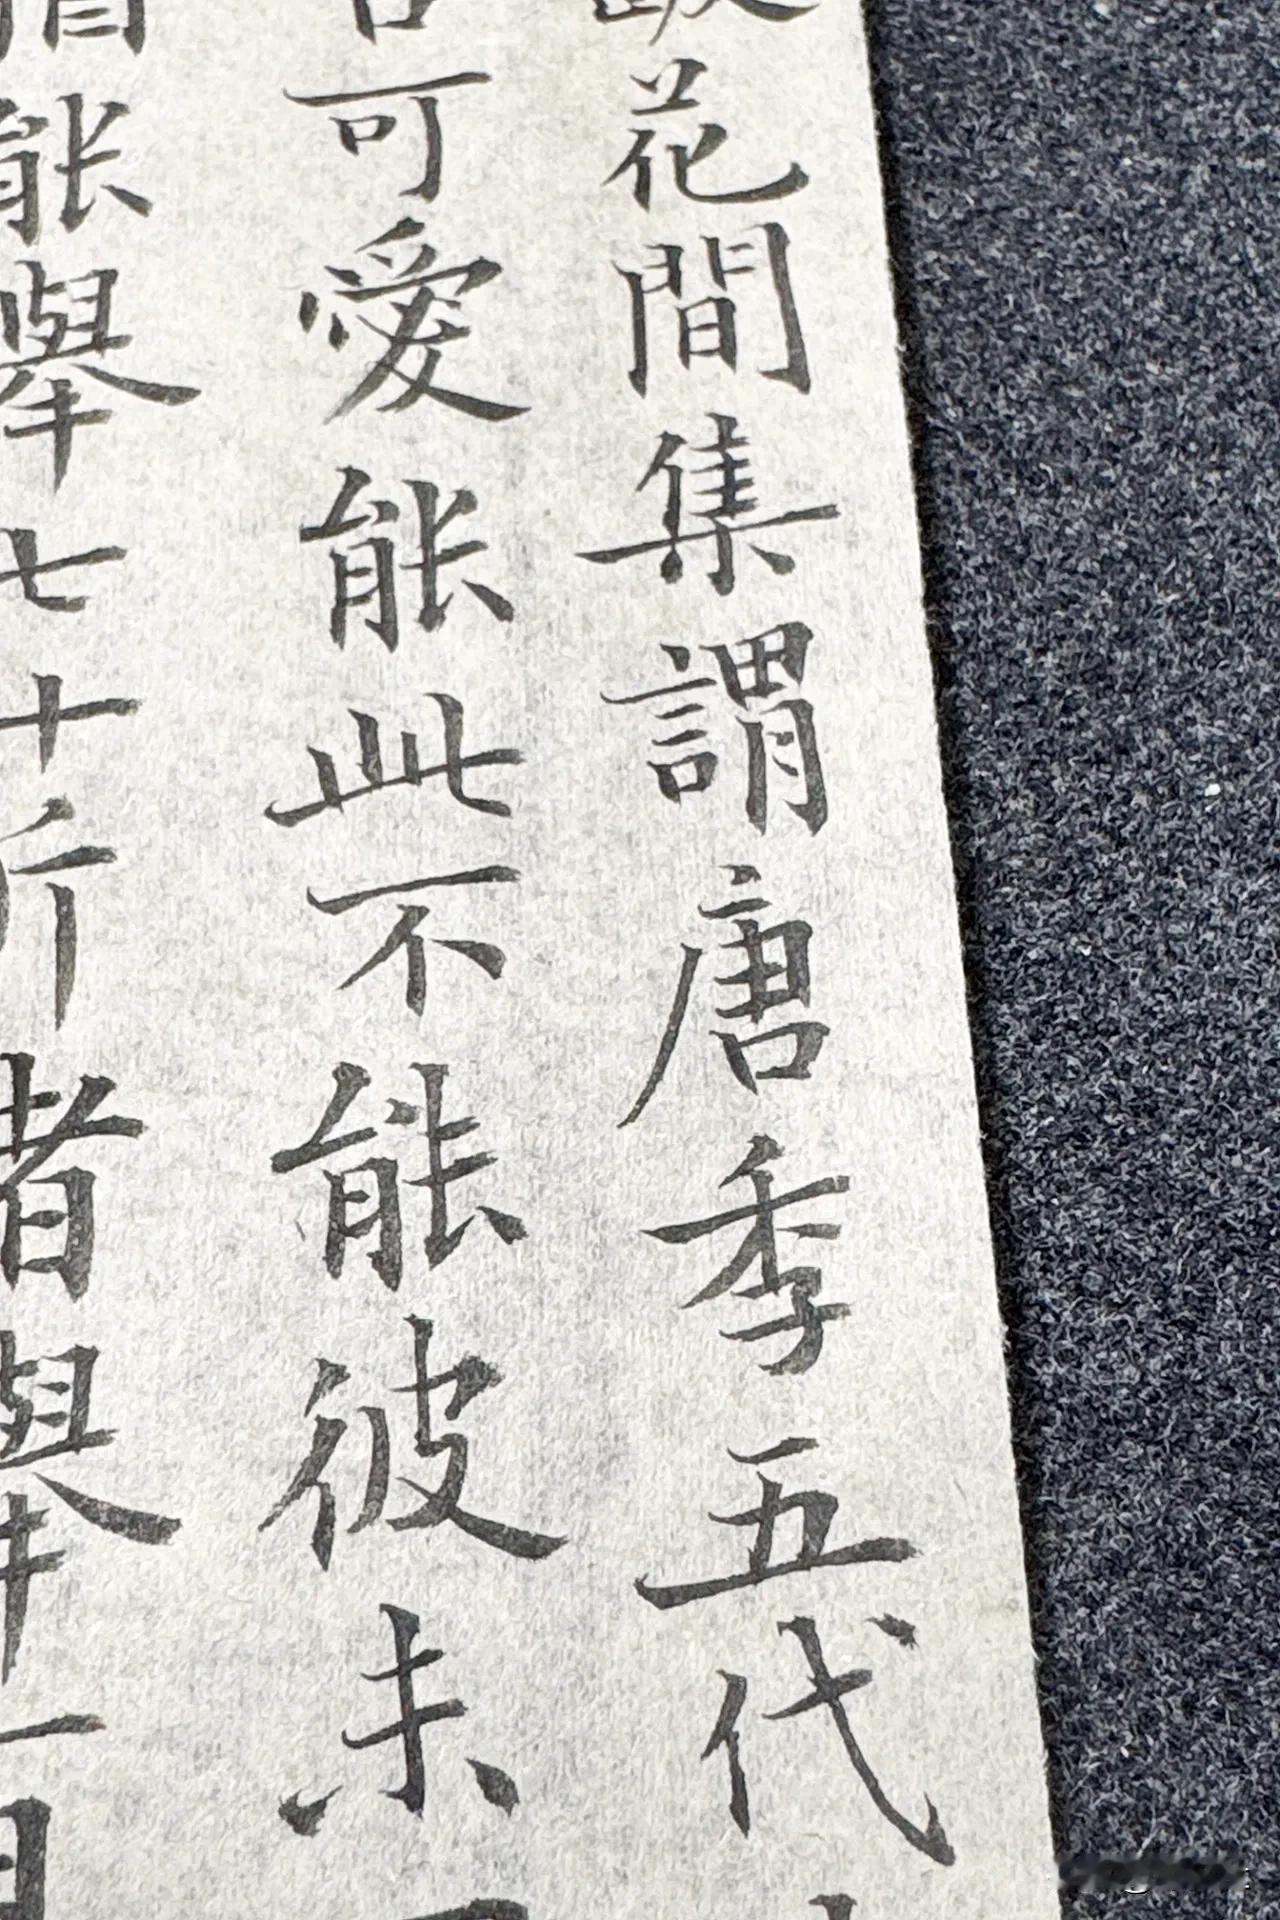 跋花間集謂唐季五代
可愛能此不能彼未
能舉七十斤者舉百